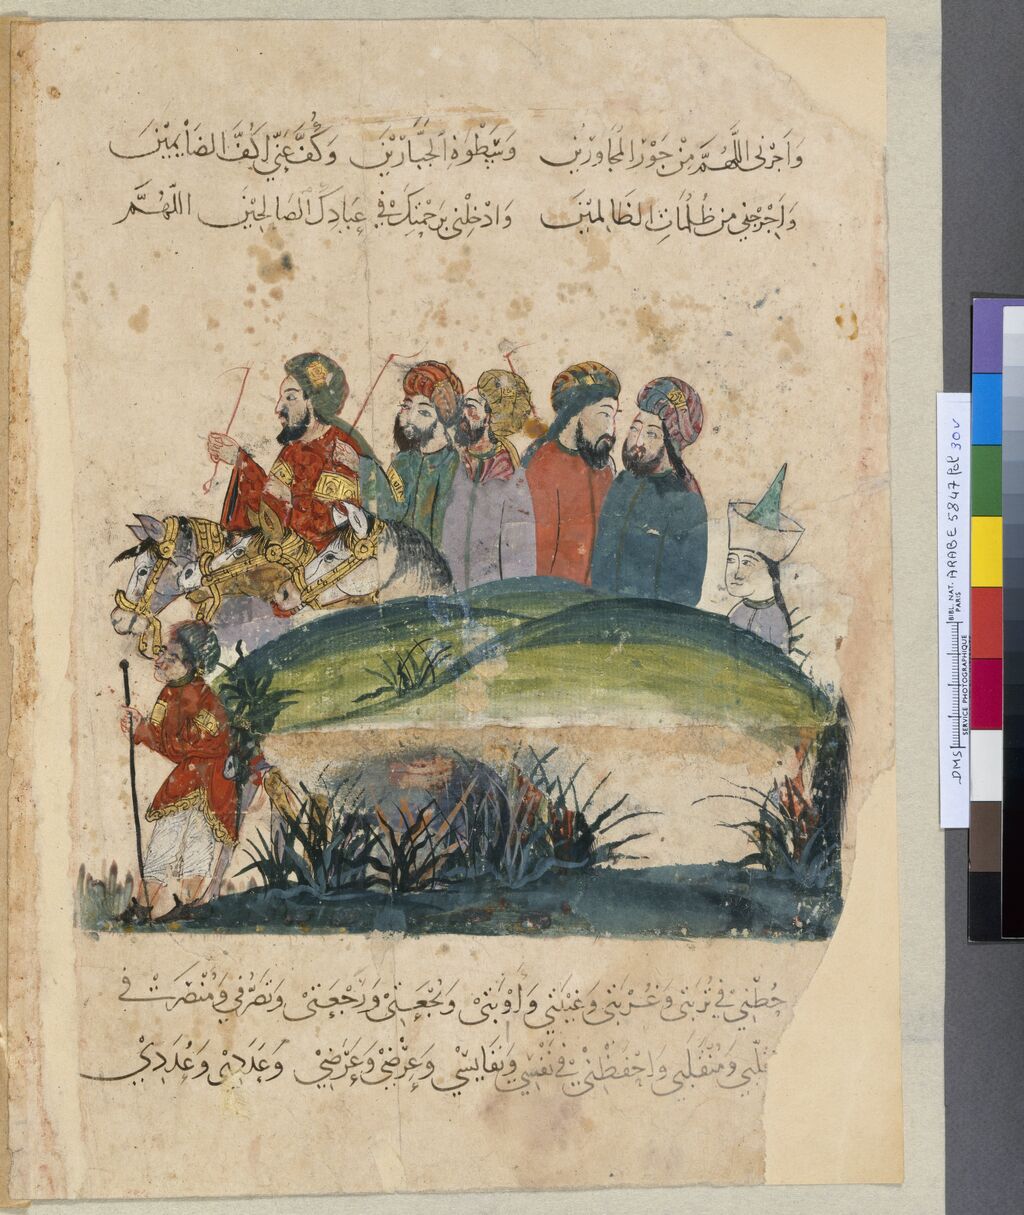 وَاَجِرْنِى اللَّهُمَّ مِنْ جَوْرِ المُجَاوِرِيْنَ وَسَطْوَةِ الجَبَّارَيْنَ وَكُفَّ عَنِّي اَكُفَّ الضَّايِمِيْنَ
وَاَخْرِجْنِي مِنْ ظُلُمَاتِ الظَالِمِيْنَ وَادْخِلْنِي بِرَحْمَتِكَ فِي عِبَادِكَ الصَالِحِيْنَ اللّهُمَّ
حُطْنِيْ فِي تُرْبَتِى وَغُرْبَتِى وَغَيْبَتِي وَاَوْبَتِىْ وَنُجْعَتِىْ وَرَجْعَتِىْ وَتَصَرُّفِي وَمُنْصَرَفِىْ
وَمُنْقَلَبِي وَاحْفَظْنِيْ فِي نَفْسِي وَنَفَايِسِيْ وَعِرْضِيْ وَعَرَضِيْ وَعَدَدِيْ وَعُدَدِيْ
BIBL. NAT. PARIS
ARABE 5847 fol 30v
DMS
SERVICE PHOTOGRAPHIQUE